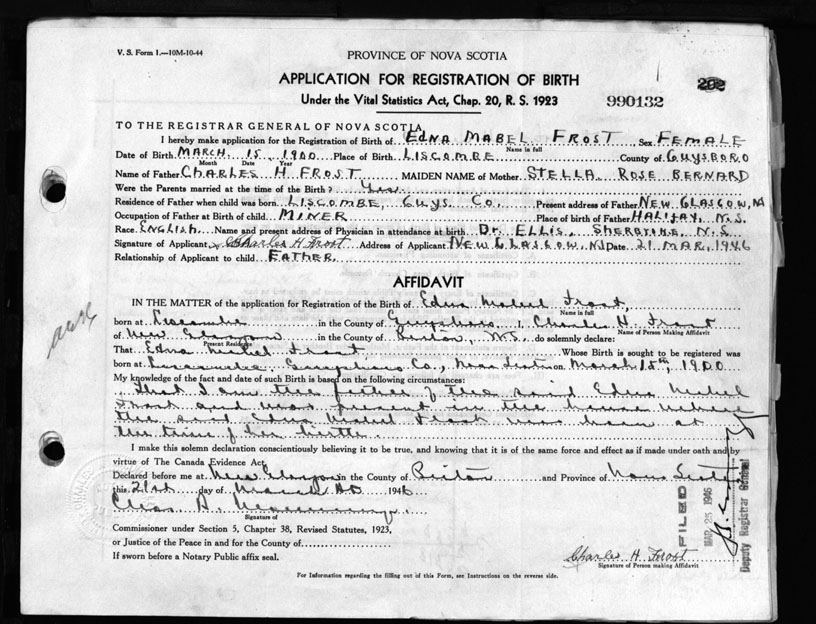 V. S. Form 1.—10M-10-44
PROVINCE OF NOVA SCOTIA
APPLICATION FOR REGISTRATION OF BIRTH
202
Under the Vital Statistics Act, Chap. 20, R. S. 1923
990132
TO THE REGISTRAR GENERAL OF NOVA SCOTIA
I hereby make application for the Registration of Birth of EDNA MABEL FROST Sex FEMALE
Name in full
Date of Birth MARCH 15, 1900 Place of Birth LISCOMBE County of GUYSBORO
Month Date Year
Name of Father CHARLES H FROST MAIDEN NAME of Mother STELLA ROSE BERNARD
Were the Parents married at the time of the Birth? Yes
Residence of Father when child was born LISCOMBE, GUYS. CO. Present address of Father NEW GLASGOW, NS
Occupation of Father at Birth of child MINER Place of birth of Father HALIFAX, N.S.
Race ENGLISH Name and present address of Physician in attendance at birth DR. ELLIS, SHERBROOKE, N.S.
Signature of Applicant x Charles H Frost Address of Applicant NEW GLASGOW, NS Date 21 MAR, 1946
Relationship of Applicant to child FATHER.
AFFIDAVIT
IN THE MATTER of the application for Registration of the Birth of Edna Mabel Frost,
Name in full
born at Liscombe in the County of Guysboro I, Charles H. Frost
Name of Person Making Affidavit
of New Glasgow in the County of Pictou, N.S. do solemnly declare:
Present Residence
That Edna Mabel Frost Whose Birth is sought to be registered was
born at Liscombe, Guysboro Co., Nova Scotia on March 15th, 1900
My knowledge of the fact and date of such Birth is based on the following circumstances:
That I am the father of the said Edna Mabel
Frost and was present in the house where
the said Edna Mabel Frost was born at
the time of her birth.
I make this solemn declaration conscientiously believing it to be true, and knowing that it is of the same force and effect as if made under oath and by
virtue of The Canada Evidence Act.
Declared before me at New Glasgow in the County of Pictou and Province of Nova Scotia
this 21st day of March A.D. 1946
Signature of
Commissioner under Section 5, Chapter 38, Revised Statutes, 1923,
or Justice of the Peace in and for the County of
If sworn before a Notary Public affix seal.
FILED
MAR 25 1946
Deputy Registrar General
Charles H Frost
Signature of Person making Affidavit
For Information regarding the filling out of this Form, see Instructions on the reverse side.